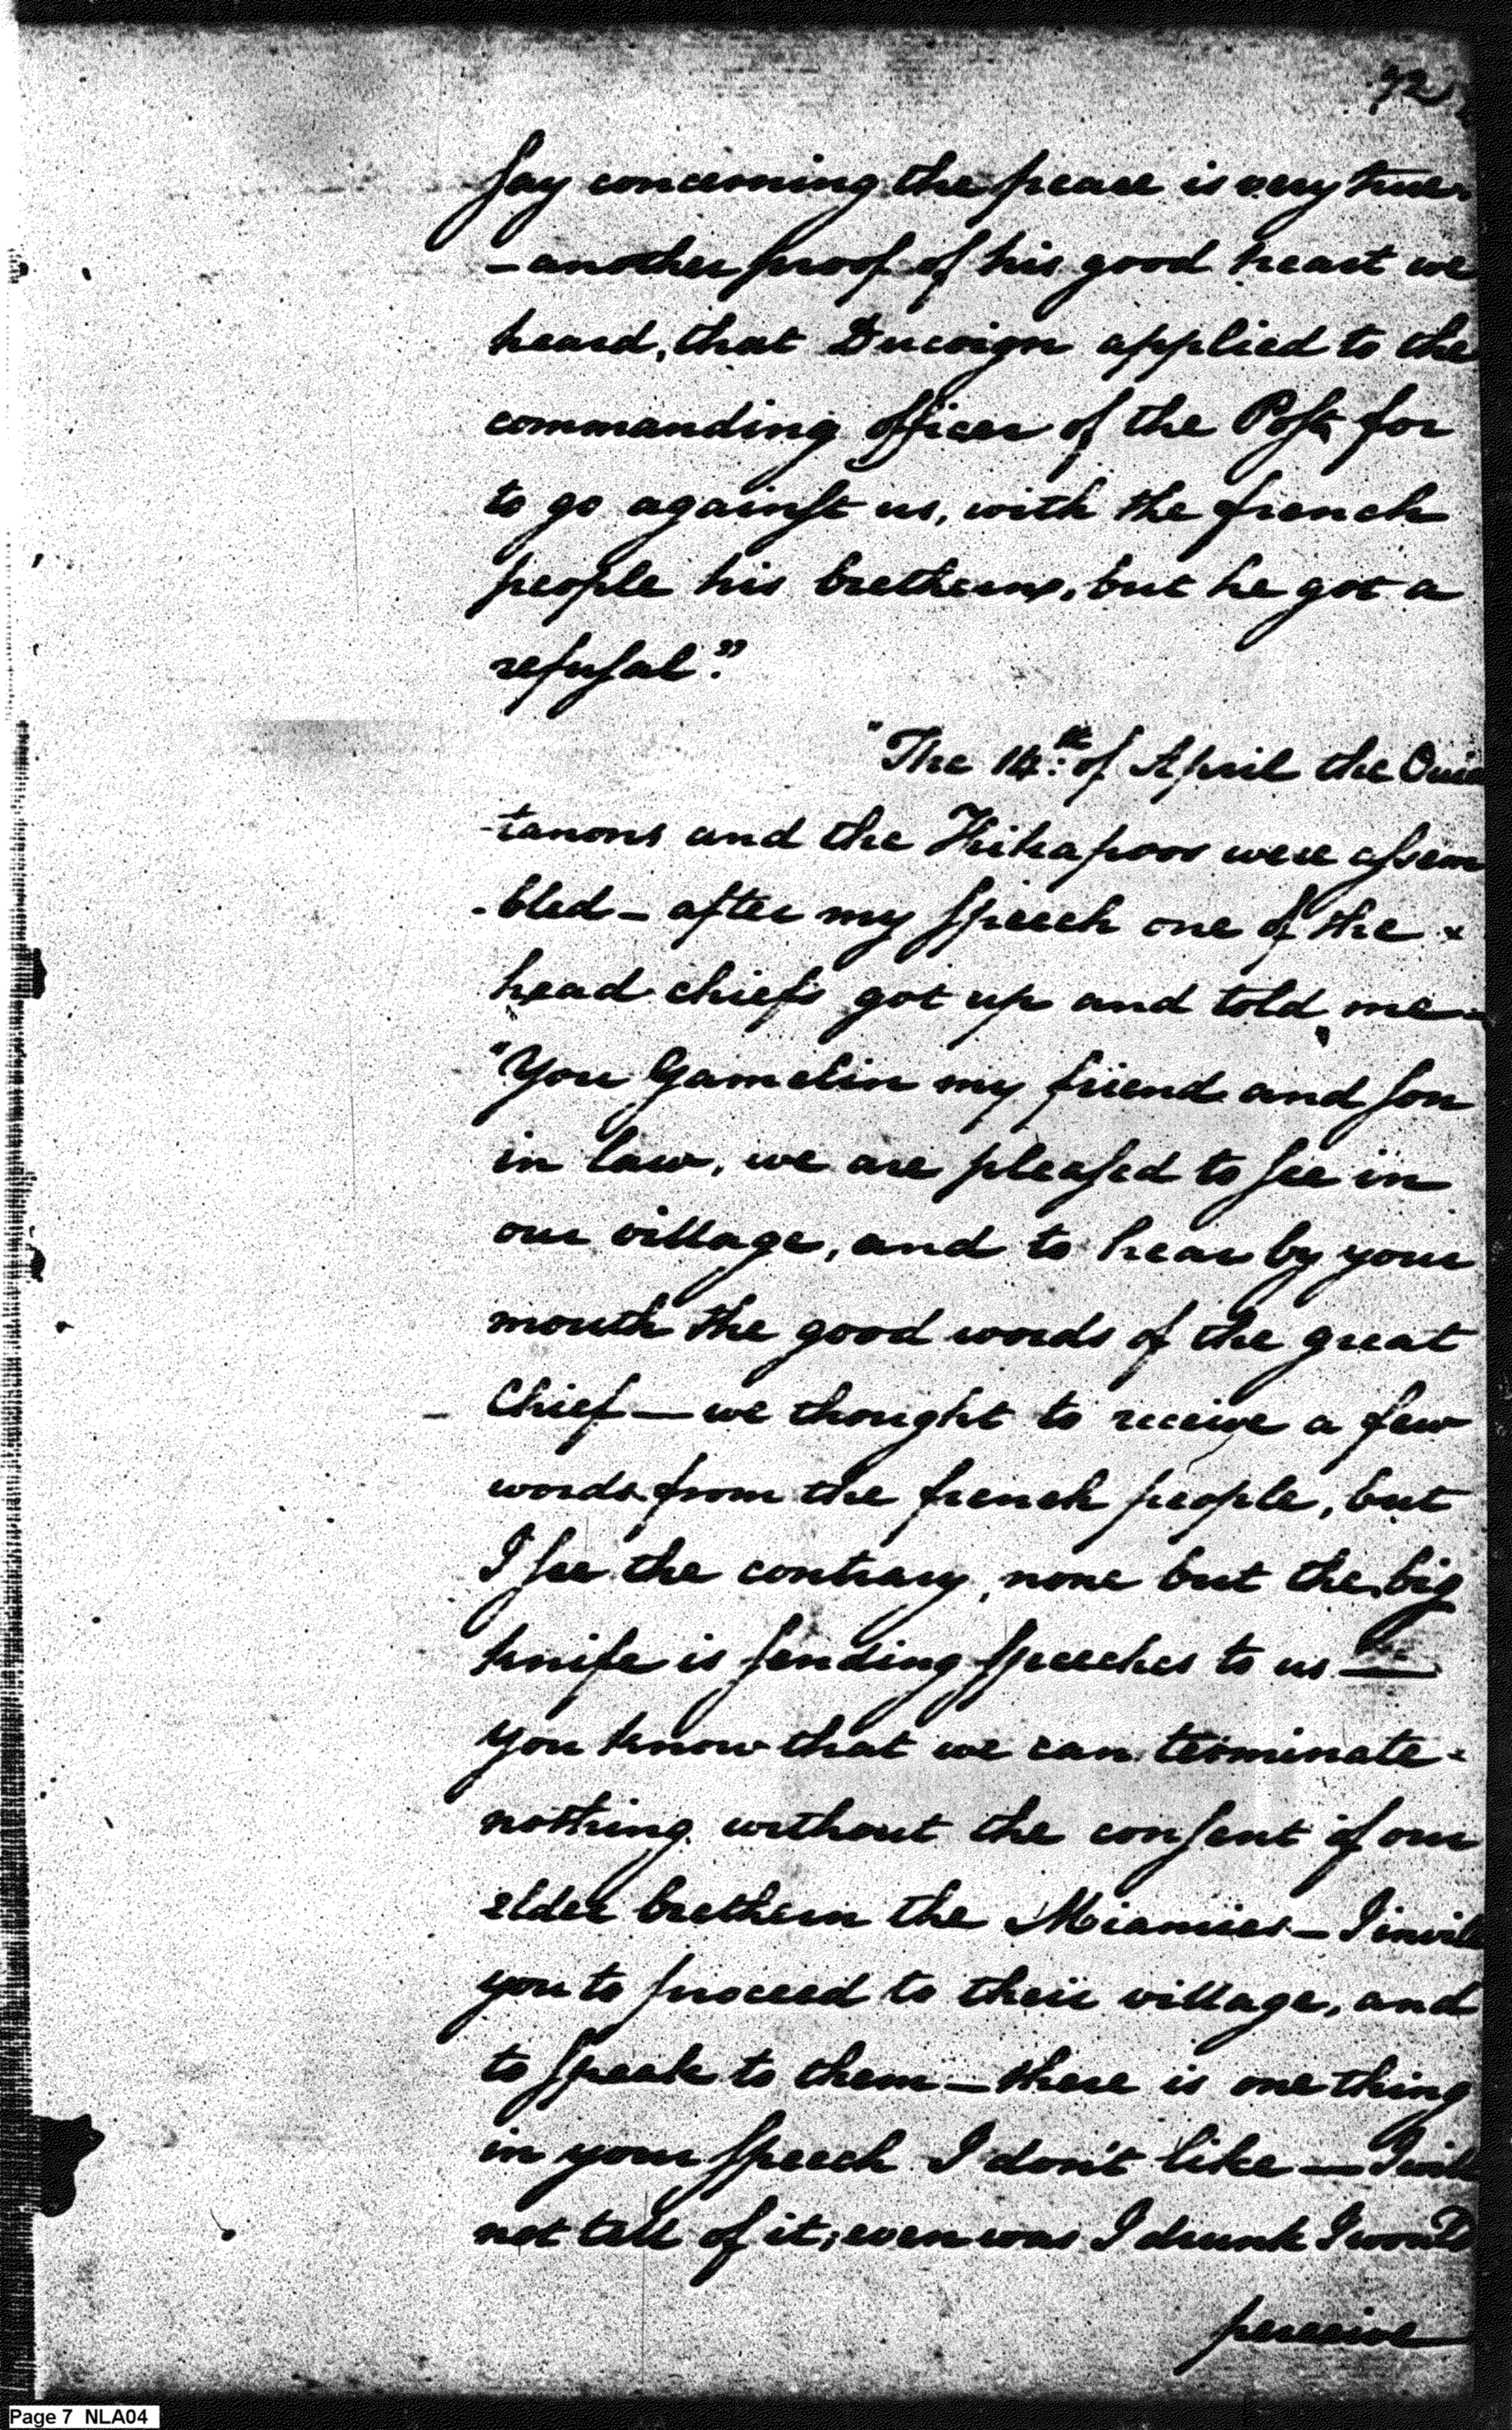 72
say concerning the peace is very true
– another proof of his good heart we
heard, that Ducoign applied to the
commanding officer of the Post, for
to go against us, with the french
people his bretherns, but he got a
refusal."
"The 14.th of April the Ouia
-tanons and the Kikapoos were assem
-bled – after my speech one of the
head chiefs got up and told me
"You Gamelin my friend and son
in law, we are pleased to see in
our village, and to hear by your
mouth the good words of the great
Chief — we thought to receive a few
words from the french people, but
I see the contrary, none but the big
knife is sending speeches to us —
you know that we can terminate
nothing without the consent of our
elder brethern the Miamies – I invite
you to proceed to their village, and
to speak to them – there is one thing
in your speech I don't like — I will
not tell of it; even was I drunk I would
perceive
Page 7 NLA04